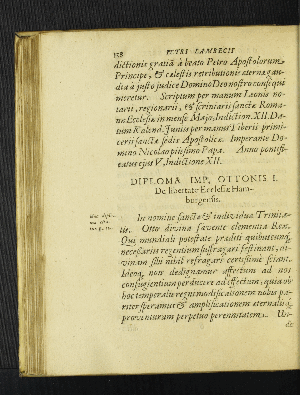 138 PETRI LAMBECII
dictionis gratiã à beato Petro Apostolorum
Principe, & cælestis retributionis æterna gau-
dia à justo judice Domino Deo nostro consequi
meretur. Scriptum per manum Leonis no-
tarii, regionarii, & scriniarii sanctæ Roma-
næ Ecclesiæ in mense Majo, Indiction. XII. Da-
tum Kalend. Junii per manus Tiberii primi-
cerii sanctæ sedis Apostolicæ. Imperante Do-
mino Nicolao piissimo Papa. Anno pontifi-
catus ejus V, Indictione XII.
DIPLOMA IMP. OTTONIS I.
De libertate Ecclesiæ Ham-
burgensis.
In nomine sanctæ & individuæ Trinita-
tis. Otto divina favente clementia Rex.
Qui mundiali potestate præditi quibuscunq;
necessariis regentium suffragari festinant, æ-
ternam sibi nihil refragari certissimè sciant.
Ideoq; non dedignamur affectum ad nos
confugientium perducere ad effectum, quia ob
hoc temporalis regni modificationem nobis pa-
riter speramus & amplificationem æternalis
proventuram perpetuo perennitatem. Un-
de